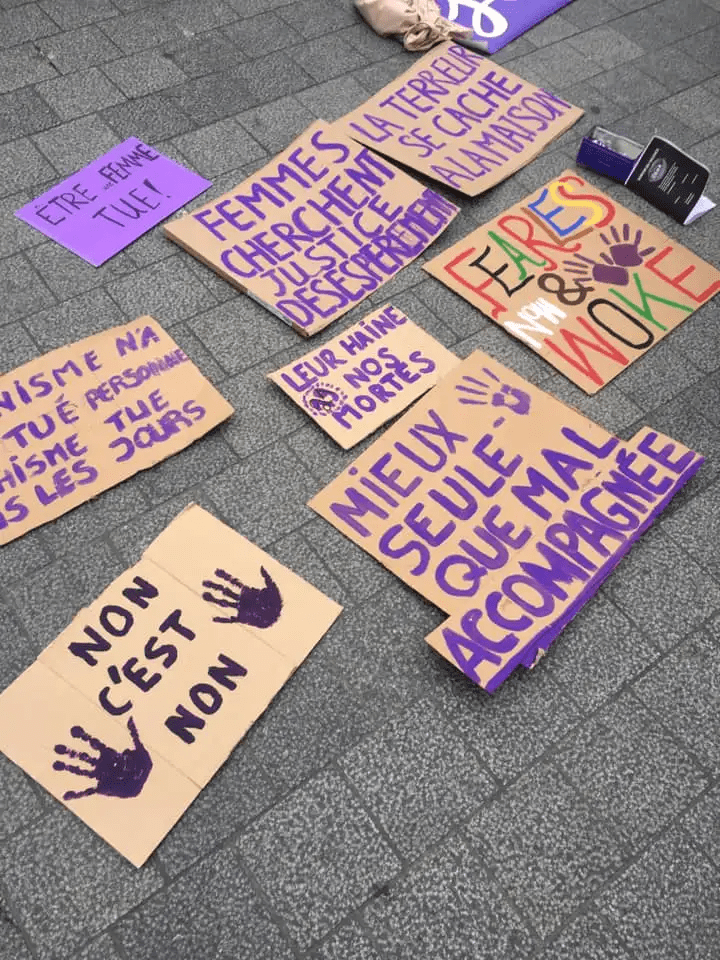 LA TERREUR
SE CACHE
A LA MAISON
ÊTRE UNE FEMME
TUE!
FEMMES
CHERCHENT
JUSTICE
DÉSESPÉRÉMENT
FEARLESS
NOW &
WOKE
LEUR HAINE
NOS
MORTES
NISME N'A
TUÉ PERSONNE
HISME TUE
S LES JOURS
MIEUX
SEULE
QUE MAL
ACCOMPAGNÉE
NON
C'EST
NON